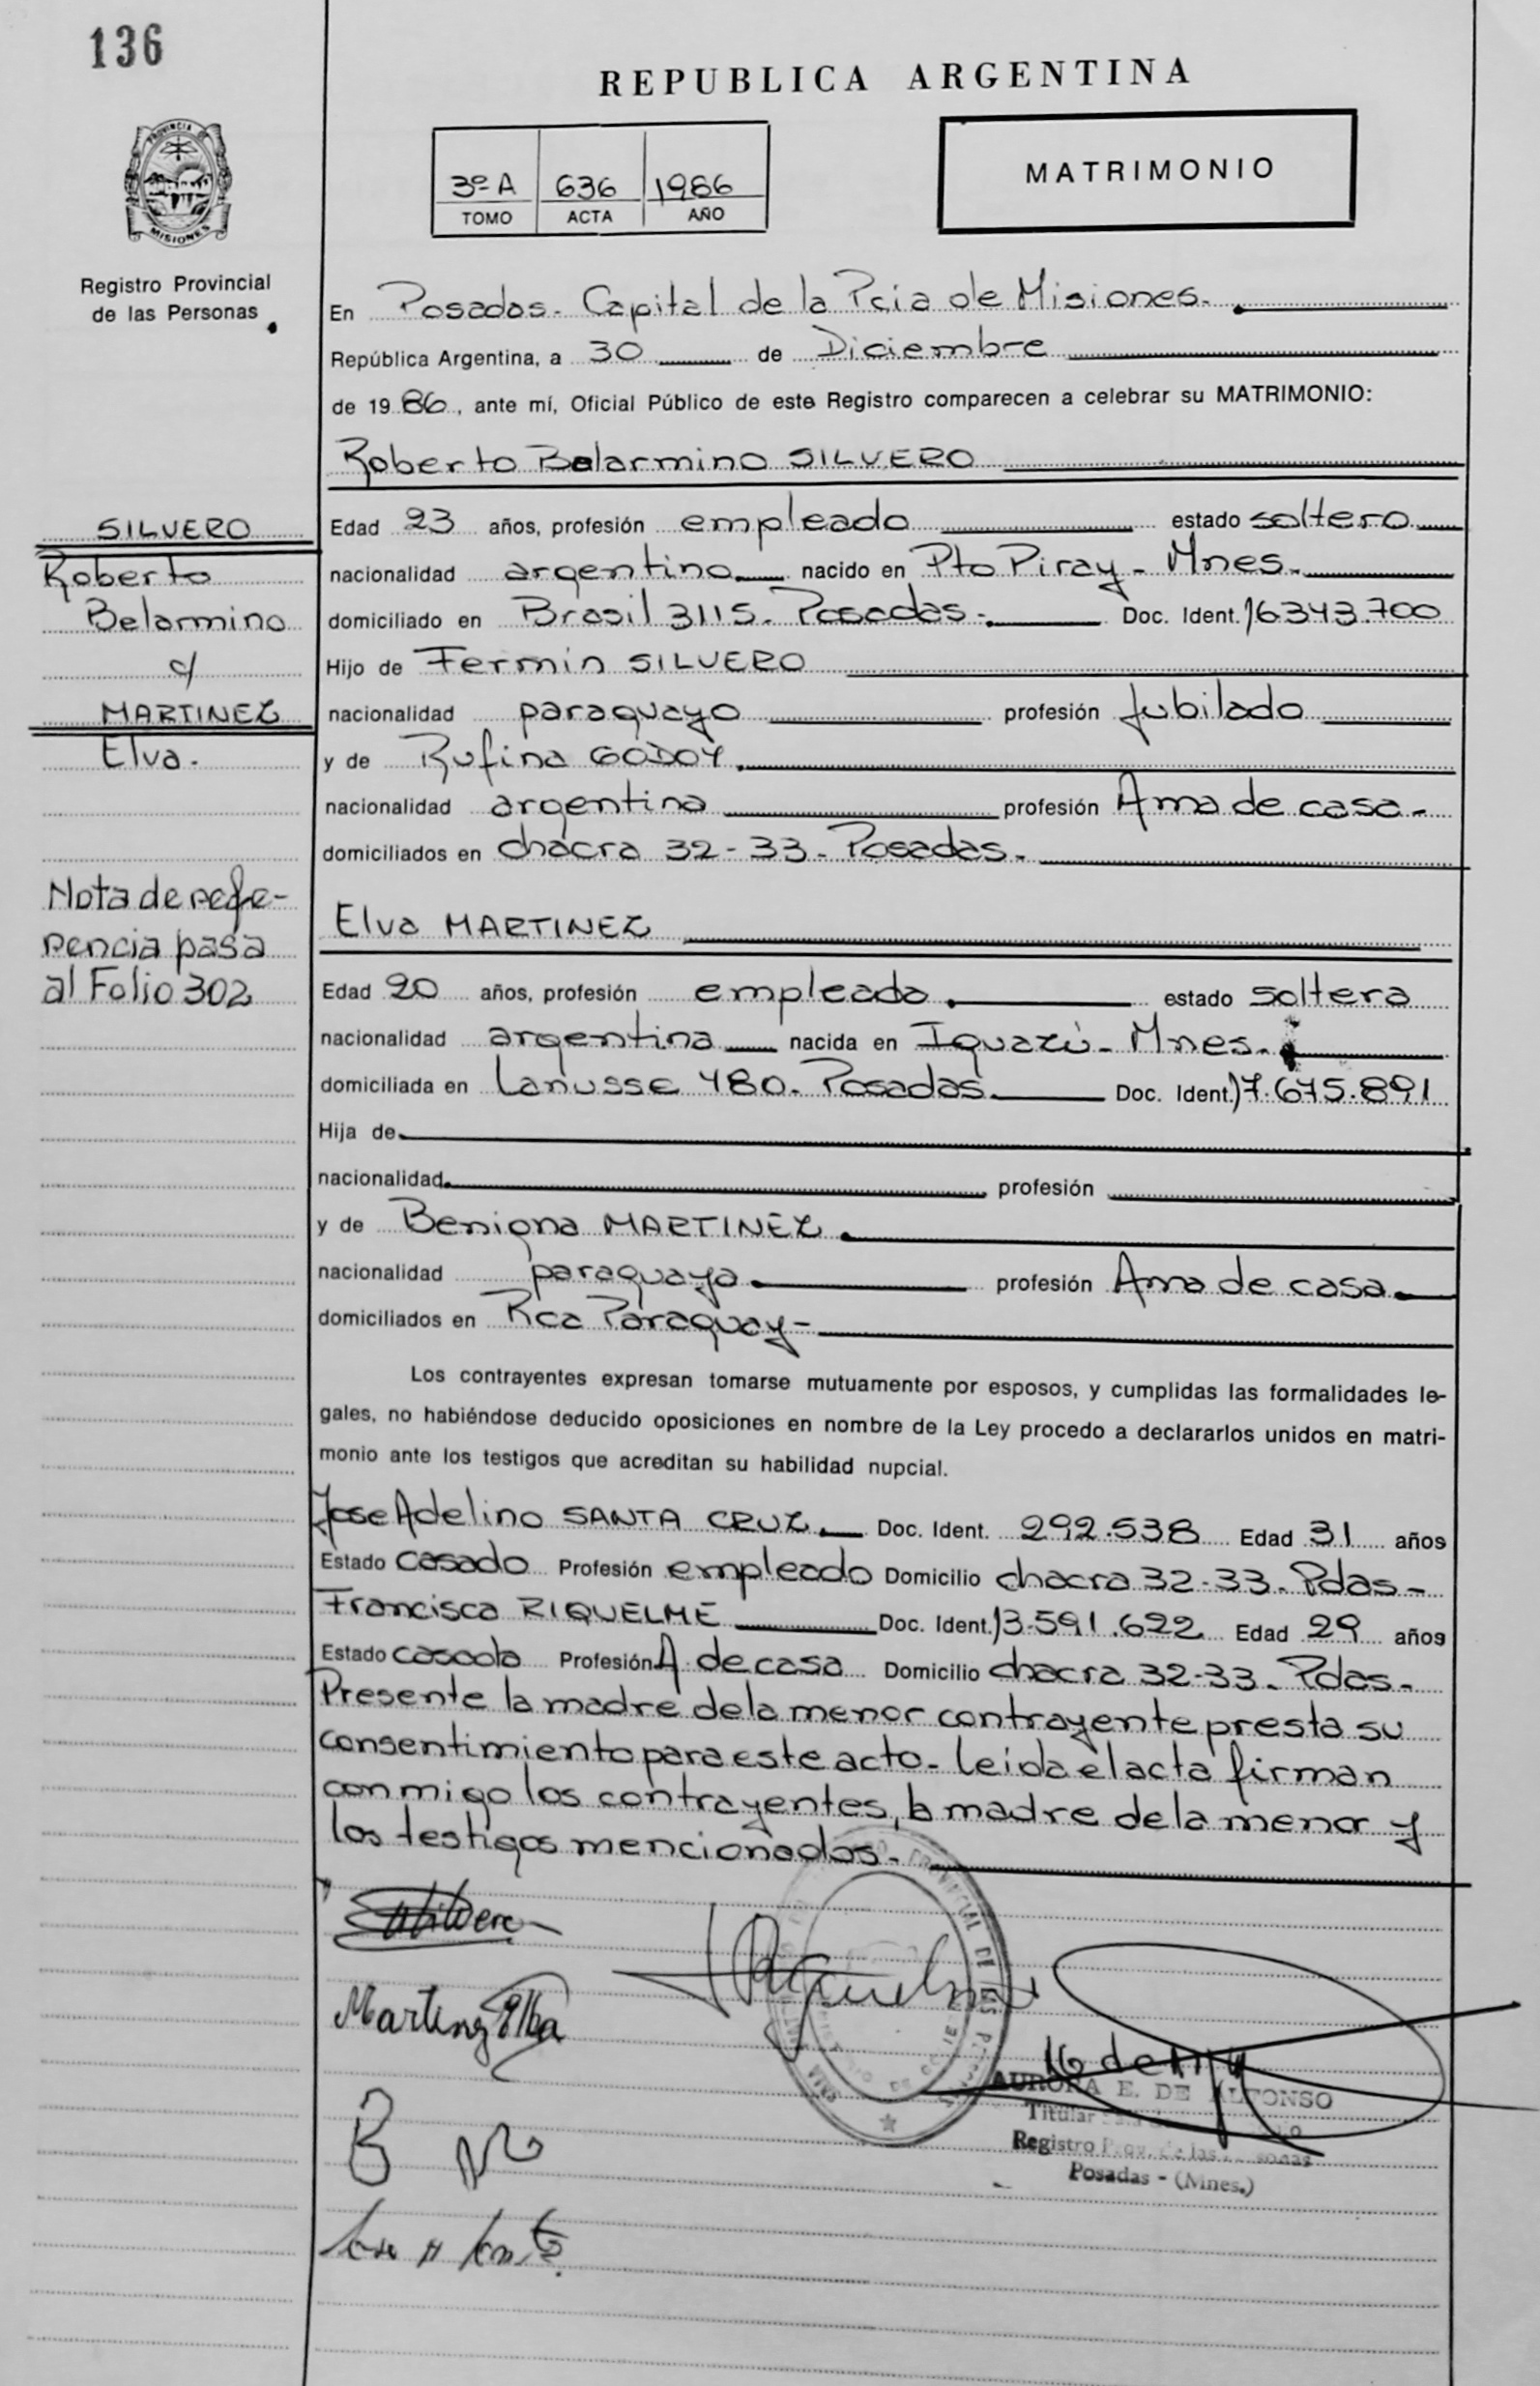 136
REPUBLICA ARGENTINA
PROVINCIA DE
MISIONES
3º A 636 1986
TOMO ACTA AÑO
MATRIMONIO
Registro Provincial
de las Personas
En Posadas - Capital de la Pcia de Misiones -
República Argentina, a 30 de Diciembre
de 1986, ante mí, Oficial Público de este Registro comparecen a celebrar su MATRIMONIO:
Roberto Belarmino SILVERO
SILVERO
Roberto
Belarmino
c/
MARTINEZ
Elva.
Nota de refe-
rencia pasa
al Folio 302
Edad 23 años, profesión empleado estado soltero
nacionalidad argentino nacido en Pto Piray - Mnes.
domiciliado en Brasil 3115. Posadas. Doc. Ident. 16.343.700
Hijo de Fermin SILVERO
nacionalidad paraguayo profesión Jubilado
y de Rufina GODOY
nacionalidad argentina profesión Ama de casa -
domiciliados en chacra 32-33 - Posadas -
Elva MARTINEZ
Edad 20 años, profesión empleada estado soltera
nacionalidad argentina nacida en Iguazú - Mnes.
domiciliada en Lanusse 480. Posadas Doc. Ident. 17.675.891
Hija de
nacionalidad profesión
y de Benigna MARTINEZ
nacionalidad paraguaya profesión Ama de casa
domiciliados en Rca Paraguay -
Los contrayentes expresan tomarse mutuamente por esposos, y cumplidas las formalidades le-
gales, no habiéndose deducido oposiciones en nombre de la Ley procedo a declararlos unidos en matri-
monio ante los testigos que acreditan su habilidad nupcial.
Jose Adelino SANTA CRUZ Doc. Ident. 292.538 Edad 31 años
Estado casado Profesión empleado Domicilio chacra 32-33 - Pdas -
Francisca RIQUELME Doc. Ident. 13.591.622 Edad 29 años
Estado casada Profesión A. de casa Domicilio chacra 32-33 - Pdas -
Presente la madre de la menor contrayente presta su
consentimiento para este acto - leída el acta firman
conmigo los contrayentes, la madre de la menor y
los testigos mencionados -
Martinez Elba
B M
AURORA E. DE ALFONSO
Titular
Registro Prov. de las Personas
Posadas - (Mnes.)